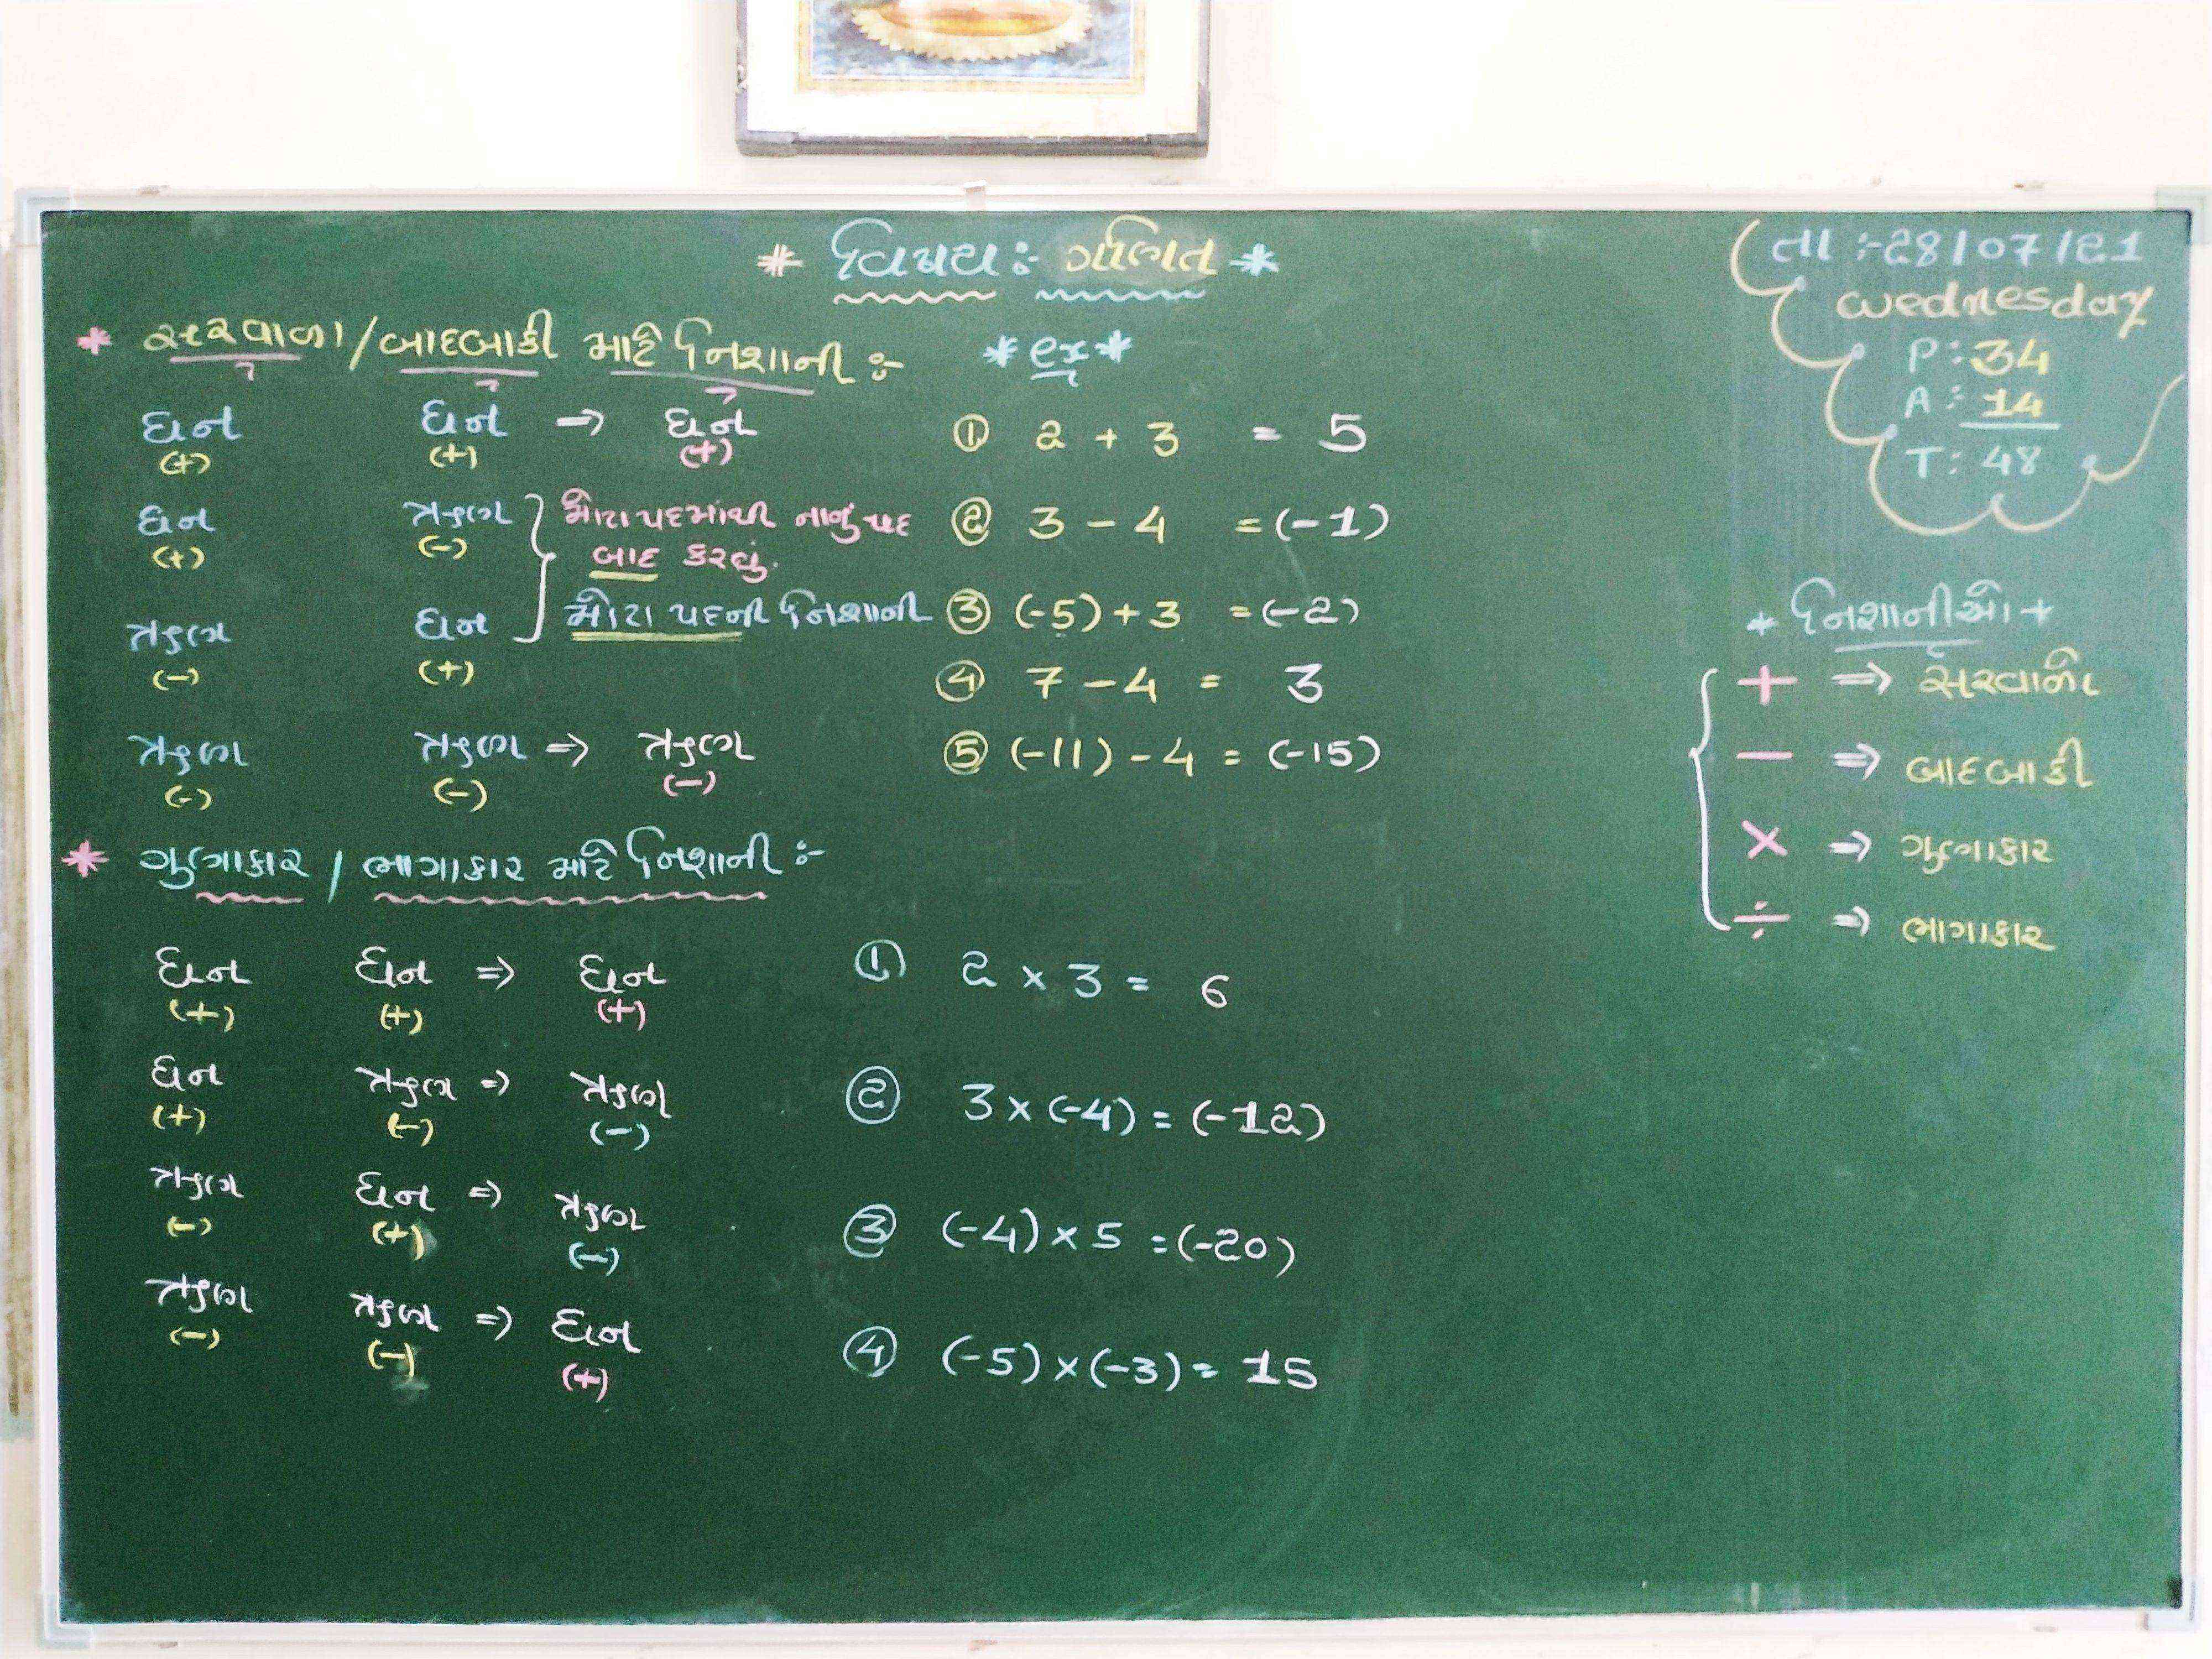 * વિષય :- ગણિત *
તા :-28/07/21
Wednesday
P : 34
A : 14
T : 48
* સરવાળા/બાદબાકી માટે નિશાની :-
ધન ધન ⇒ ધન
(+) (+) (+)
ધન ઋણ } મોટા પદમાંથી નાનું પદ
(+) (-) બાદ કરવું.
ઋણ ધન મોટા પદની નિશાની
(-) (+)
ઋણ ઋણ ⇒ ઋણ
(-) (-) (-)
* ex *
① 2 + 3 = 5
② 3 - 4 = (-1)
③ (-5) + 3 = (-2)
④ 7 - 4 = 3
⑤ (-11) - 4 = (-15)
* ગુણાકાર / ભાગાકાર માટે નિશાની :-
ધન ધન ⇒ ધન
(+) (+) (+)
ધન ઋણ ⇒ ઋણ
(+) (-) (-)
ઋણ ધન ⇒ ઋણ
(-) (+) (-)
ઋણ ઋણ ⇒ ધન
(-) (-) (+)
① 2 × 3 = 6
② 3 × (-4) = (-12)
③ (-4) × 5 = (-20)
④ (-5) × (-3) = 15
* નિશાનીઓ *
+ ⇒ સરવાળો
- ⇒ બાદબાકી
× ⇒ ગુણાકાર
÷ ⇒ ભાગાકાર